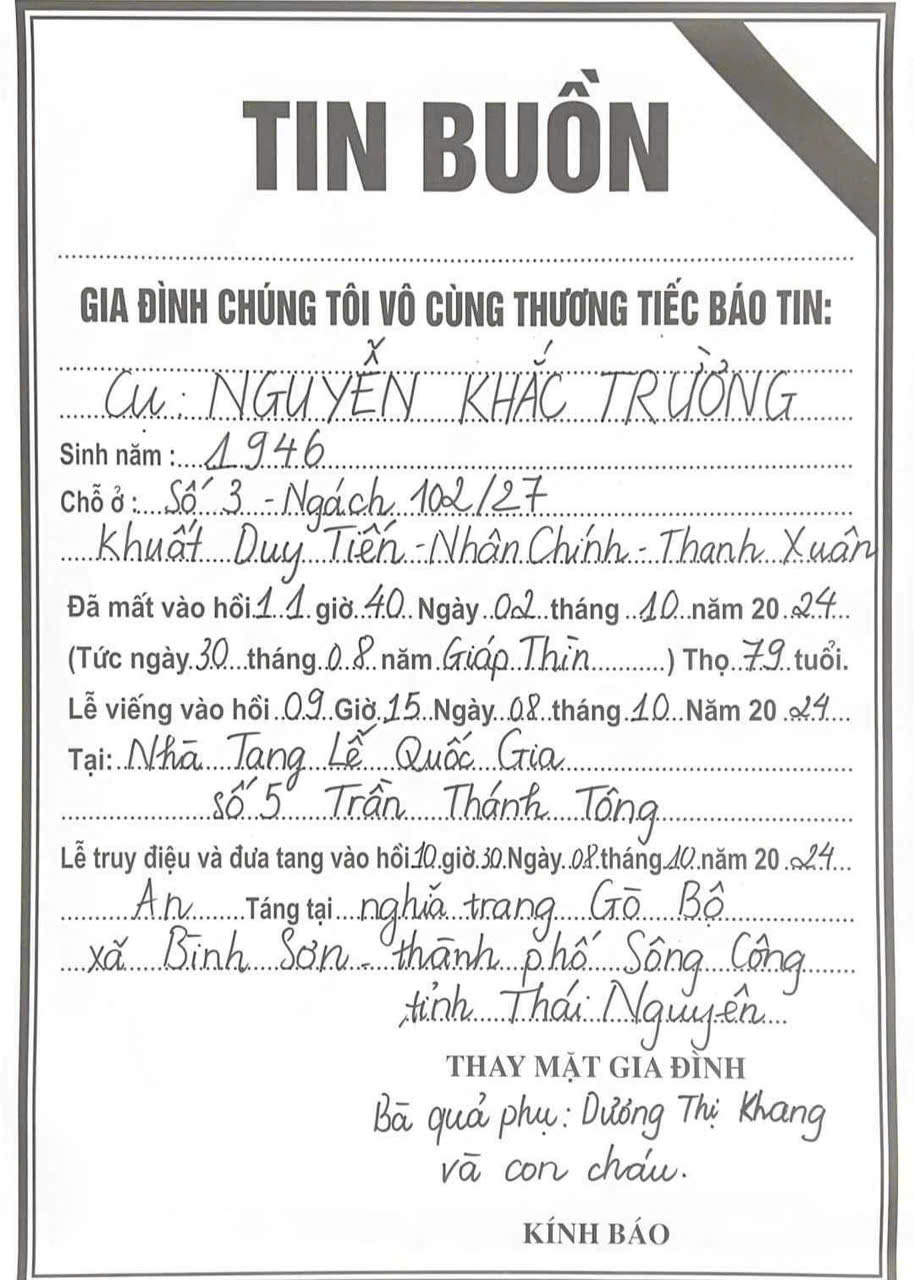 TIN BUỒN
GIA ĐÌNH CHÚNG TÔI VÔ CÙNG THƯƠNG TIẾC BÁO TIN:
Cụ: NGUYỄN KHẮC TRƯỜNG
Sinh năm: 1946
Chỗ ở: Số 3 - Ngách 102/27
Khuất Duy Tiến - Nhân Chính - Thanh Xuân
Đã mất vào hồi 11 giờ 40 Ngày 02 tháng 10 năm 20 24
(Tức ngày 30 tháng 08 năm Giáp Thìn) Thọ 79 tuổi.
Lễ viếng vào hồi 09 Giờ 15 Ngày 08 tháng 10 Năm 20 24
Tại: Nhà Tang Lễ Quốc Gia
số 5 Trần Thánh Tông
Lễ truy điệu và đưa tang vào hồi 10 giờ 30 Ngày 08 tháng 10 năm 20 24
An Táng tại nghĩa trang Gò Bộ
xã Bình Sơn - thành phố Sông Công
tỉnh Thái Nguyên
THAY MẶT GIA ĐÌNH
Bà quả phụ: Dương Thị Khang
và con cháu.
KÍNH BÁO